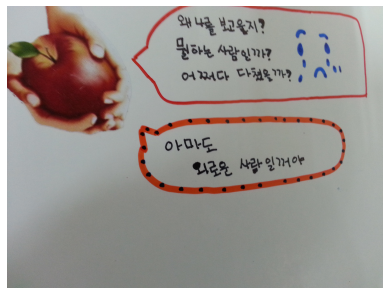 왜 나를 보고있지?
뭘하는 사람인가?
어쩌다 다쳤을까?
아마도
외로운 사람일꺼야